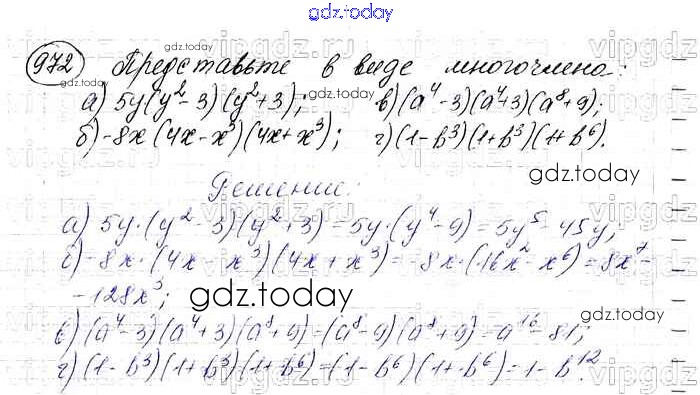 gdz.today
972 Представьте в виде многочлена:
gdz.today
а) 5y(y²-3)(y²+3); в)(a⁴-3)(a⁴+3)(a⁸+9);
б)-8x(4x-x³)(4x+x³); г)(1-b³)(1+b³)(1+b⁶).
gdz.today
Решение:
а) 5y·(y²-3)(y²+3)=5y·(y⁴-9)=5y⁵-45y;
б)-8x·(4x-x³)(4x+x³)=-8x·(16x²-x⁶)=8x⁷-
-128x³;
gdz.today
в)(a⁴-3)(a⁴+3)(a⁸+9)=(a⁸-9)(a⁸+9)=a¹⁶-81;
г)(1-b³)(1+b³)(1+b⁶)=(1-b⁶)(1+b⁶)=1-b¹².